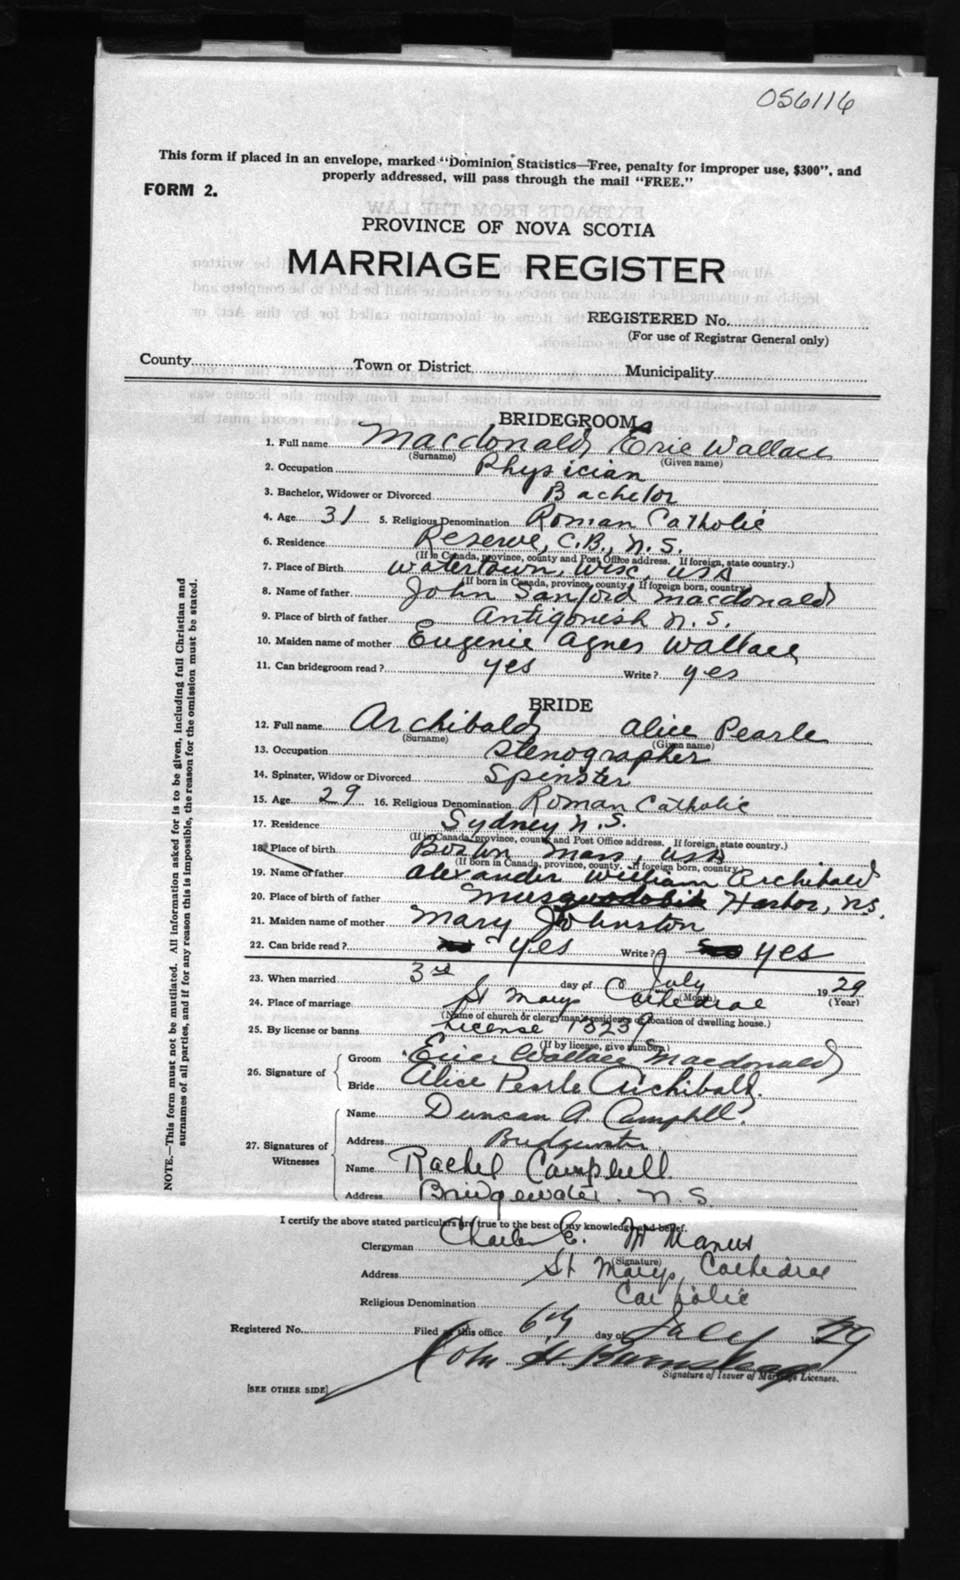 056116
This form if placed in an envelope, marked "Dominion Statistics—Free, penalty for improper use, $300", and
properly addressed, will pass through the mail "FREE."
FORM 2.
PROVINCE OF NOVA SCOTIA
MARRIAGE REGISTER
REGISTERED No.
(For use of Registrar General only)
County Town or District Municipality
BRIDEGROOM
1. Full name Macdonald, Eric Wallace
(Surname) (Given name)
2. Occupation Physician
3. Bachelor, Widower or Divorced Bachelor
4. Age 31 5. Religious Denomination Roman Catholic
6. Residence Reserve, C.B., N.S.
(If in Canada, province, county and Post Office address. If foreign, state country.)
7. Place of Birth Watertown, Wisc, USA
(If born in Canada, province, county. If foreign born, country.)
8. Name of father John Sanford Macdonald
9. Place of birth of father Antigonish N.S.
10. Maiden name of mother Eugenie Agnes Wallace
11. Can bridegroom read? yes Write? yes
BRIDE
12. Full name Archibald, Alice Pearle
(Surname) (Given name)
13. Occupation Stenographer
14. Spinster, Widow or Divorced Spinster
15. Age 29 16. Religious Denomination Roman Catholic
17. Residence Sydney N.S.
(If in Canada, province, county and Post Office address. If foreign, state country.)
18. Place of birth Boston Mass, USA
(If born in Canada, province, county. If foreign born, country.)
19. Name of father Alexander William Archibald
20. Place of birth of father Musquodobit Harbor, N.S.
21. Maiden name of mother Mary Johnston
22. Can bride read? yes Write? yes
23. When married 3rd day of July 1929
(Month) (Year)
24. Place of marriage St Marys Cathedral
(Name of church or clergyman's residence or location of dwelling house.)
25. By license or banns License
(If by license, give number)
26. Signature of Groom Eric Wallace Macdonald
Bride Alice Pearle Archibald.
27. Signatures of Witnesses
Name Duncan A. Campbell.
Address Bridgewater
Name Rachel Campbell
Address Bridgewater. N.S.
I certify the above stated particulars are true to the best of my knowledge and belief.
Clergyman Charles E. McManus
(Signature)
Address St Marys Cathedral
Religious Denomination Catholic
Registered No. Filed at this office 6th day of July 29
Signature of Issuer of Marriage Licenses.
[SEE OTHER SIDE]
NOTE.—This form must not be mutilated. All information asked for is to be given, including full Christian and
surnames of all parties, and if for any reason this is impossible, the reason for the omission must be stated.